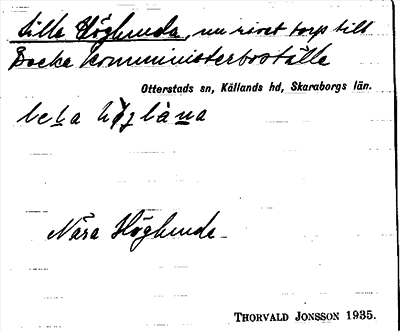 Lilla Höglunda, nu rivet torp till
Backa komministerboställe
Otterstads sn, Kållands hd, Skaraborgs län.
Nära Höglunda
THORVALD JONSSON 1935.